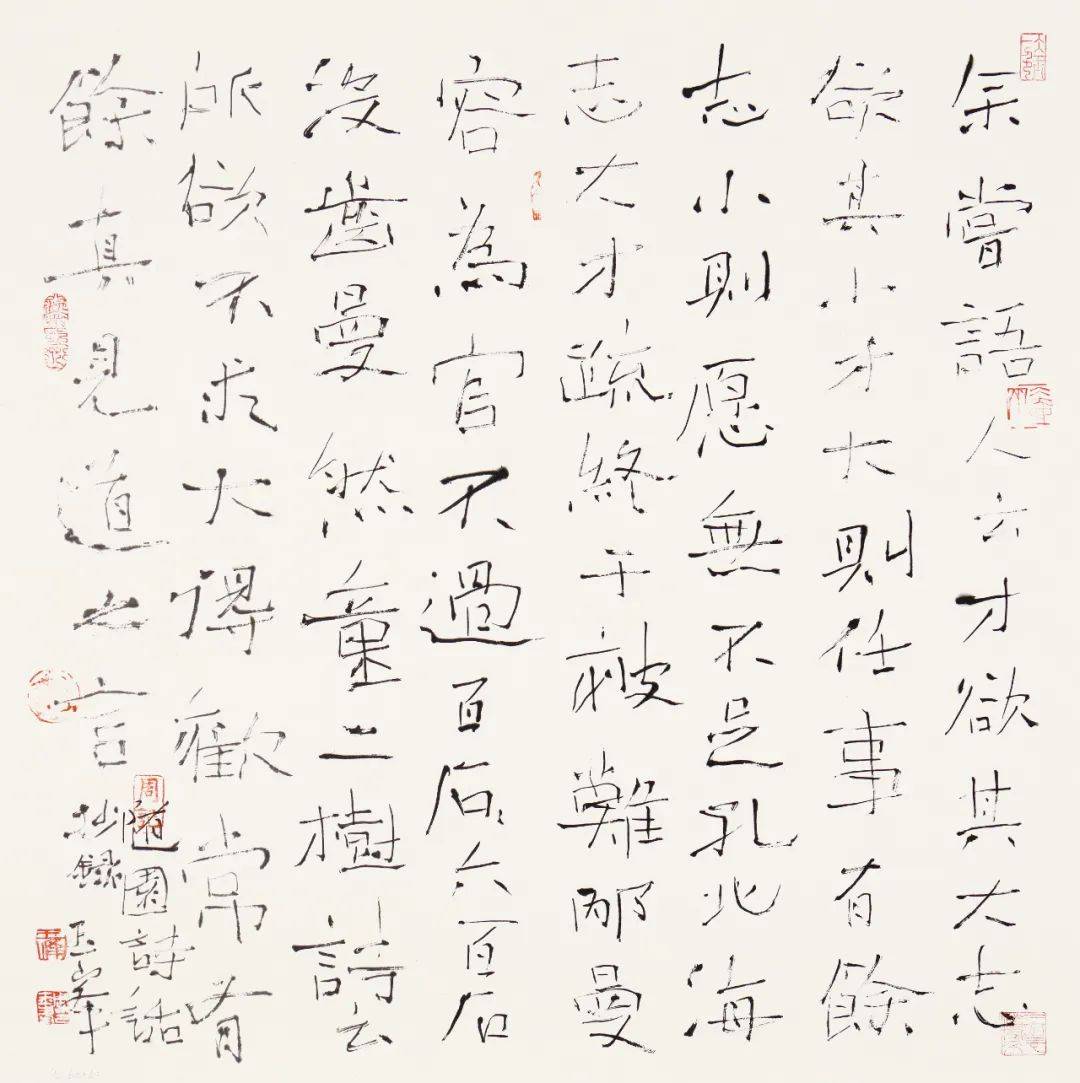 余嘗語人云才欲其大志
欲其小才大則任事有餘
志小則愿無不足孔北海
志大才疏終于被難邴曼
容為官不過百石六百石
沒齒曼然童二樹詩云
所欲不求大得歡常有
餘真見道之言
隨園詩話
抄錄玉峯